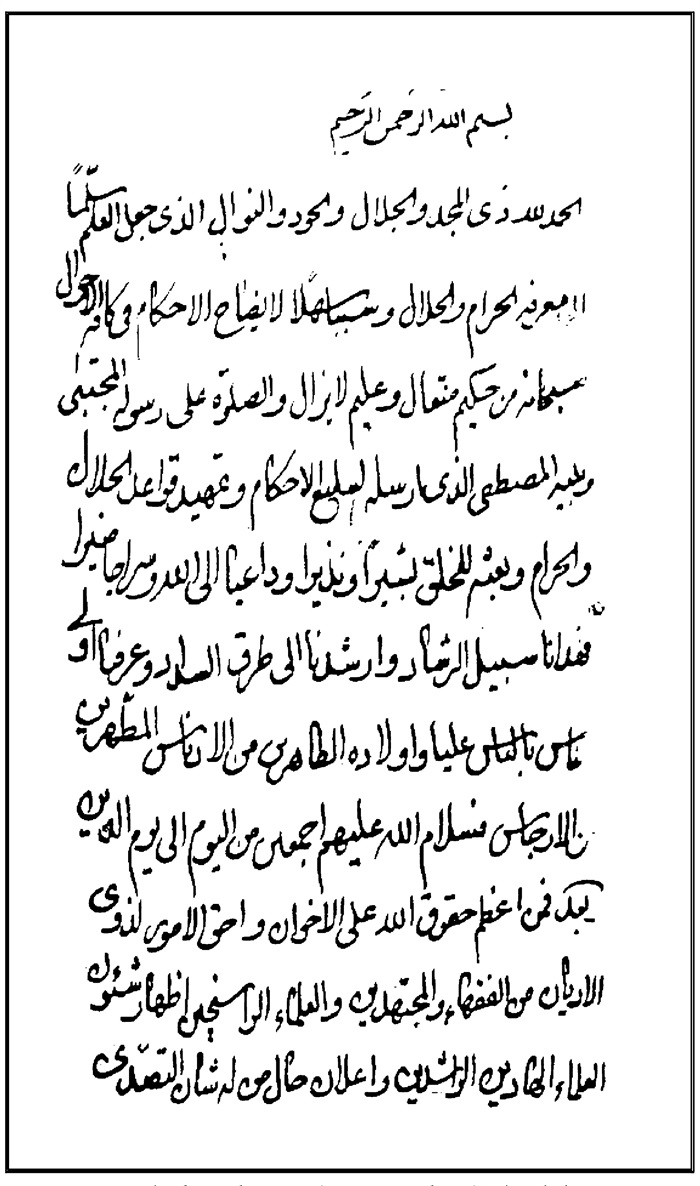 بسم الله الرحمن الرحیم
الحمد لله ذی المجد والجلال والجود والنوال الذی جعل العلم سلّماً
لامعرفة الحرام والحلال وسبباً سهلاً لایضاح الاحکام فی کافة الاحوال
سبحانه من حکیم متعال وعلیم لایزال والصلوة علی رسوله المجتبی
ونبیه المصطفی الذی ارسله لتبلیغ الاحکام وتمهید قواعد الحلال
والحرام وبعثه للخلق بشیراً ونذیرا وداعیا الی الله وسراجا منیرا
فهدانا سبیل الرشاد وارشدنا الی طرق السداد وعرفنا اولی
الناس بالناس علیا واولاده الطاهرین من الادناس المطهرین
من الارجاس فسلام الله علیهم اجمعین من الیوم الی یوم الدین
وبعد فمن اعظم حقوق الله علی الاخوان واحق الامور لذوی
الادیان من الفقهاء والمجتهدین والعلماء الراسخین اظهار شئون
العلماء الهادین الراشدین واعلان حال من له شان التصدّی